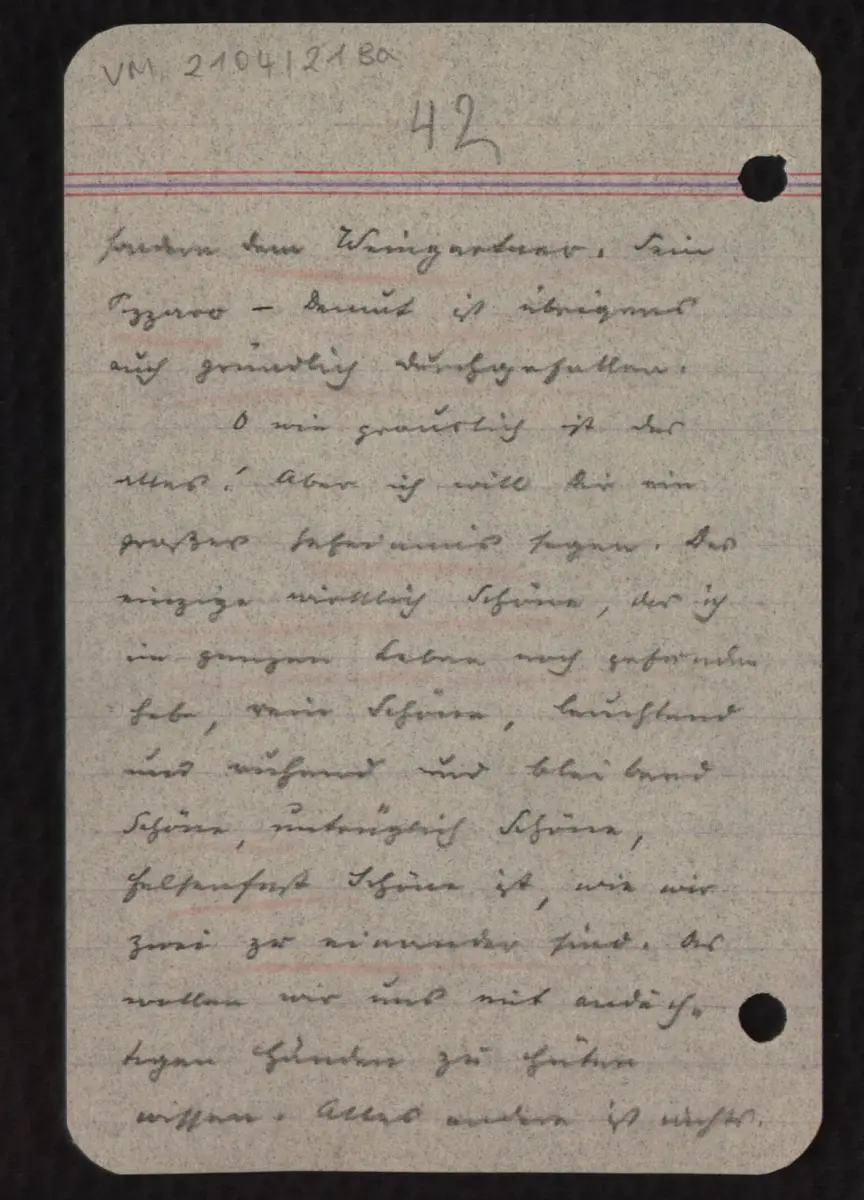 VM 2104/218a
42
sondern dem Weingartner. Sein
Pizzaro – Demut ist übrigens
auch gründlich durchgefallen.
O wie grauslich ist das
alles! Aber ich will Dir ein
großes Geheimnis sagen. Das
einzige wirklich Schöne, das ich
im ganzen Leben noch gefunden
habe, rein Schöne, leuchtend
und ruhend und bleibend
Schöne, untrüglich Schöne,
felsenfest Schöne ist, wie wir
zwei zu einander sind. Das
wollen wir uns mit andäch-
tigen Händen zu hüten
wissen. Alles andere ist nichts.